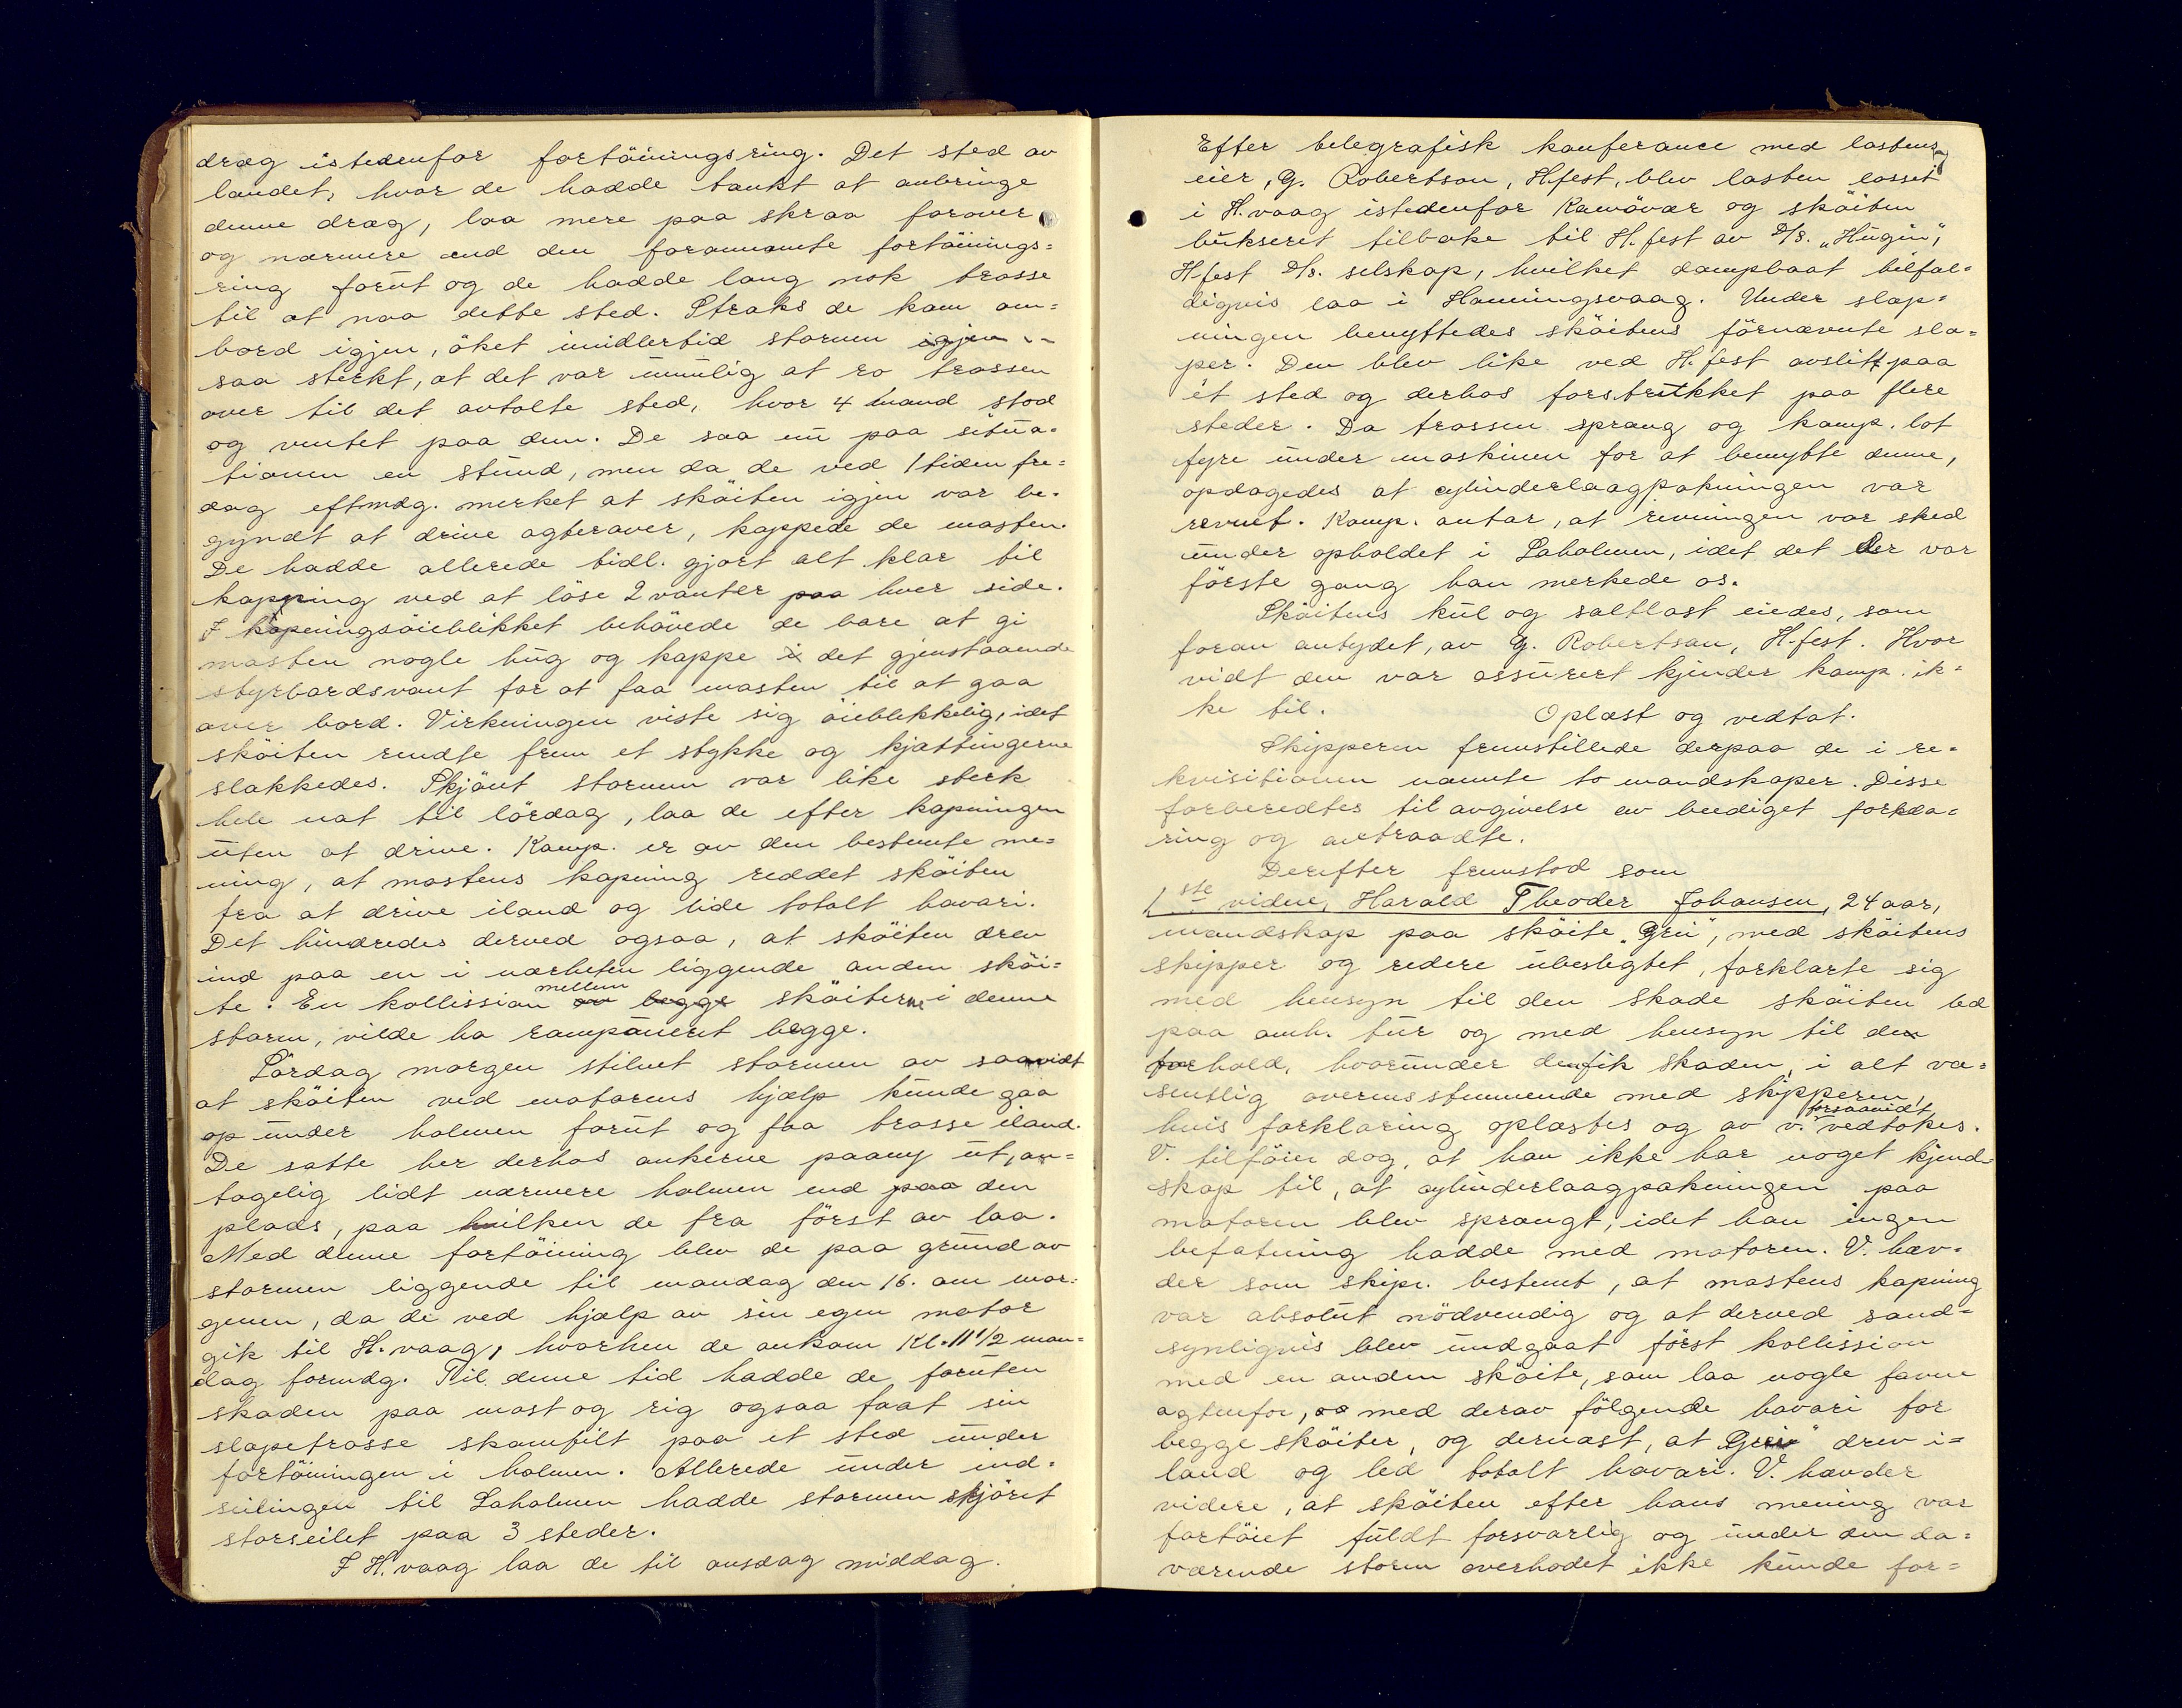 dræg istedenfor fortöiningsring. Det sted av
landet, hvor de hadde tænkt at anbringe
denne dræg, laa mere paa skraa forover
og nærmere end den forannævnte fortöinings=
ring forut og de hadde lang nok trosse
til at naa dette sted. Straks de kom om=
bord igjen, öket imidlertid stormen igjen
saa sterkt, at det var umulig at ro trossen
over til det avtalte sted, hvor 4 mand stod
og ventet paa den. De saa nu paa situa=
tionen en stund, men da de ved 1 tiden fre=
dag eftmdg. merket at sköiten igjen var be=
gyndt at drive agterover, kappede de masten.
De hadde allerede tidl. gjort alt klar til
kapping ved at löse 2 vanter paa hver side.
I kapningsöieblikket behövede de bare at gi
masten nogle hug og kappe i det gjenstaaende
styrbordsvant for at faa masten til at gaa
over bord. Virkningen viste sig öieblikkelig, idet
sköiten rendte frem et stykke og kjættingerne
slakkedes. Skjönt stormen var like sterk
hele nat til lördag, laa de efter kapningen
uten at drive. Komp. er av den bestemte me=
ning, at mastens kapning reddet sköiten
fra at drive iland og lide totalt havari.
Det hindredes derved ogsaa, at sköiten drev
ind paa en i nærheten liggende anden sköi=
te. En kollission av begge mellem sköiterne i denne
storm, vilde ha ramponert begge.
Lördag morgen stilnet stormen av saavidt
at sköiten ved motorens hjælp kunde gaa
op under holmen forut og faa trosse iland.
De satte her derhos ankerne paany ut, an=
tagelig lidt nærmere holmen end paa den
plads, paa hvilken de fra först av laa.
Med denne fortöining blev de paa grund av
stormen liggende til mandag den 16. om mor=
genen, da de ved hjælp av sin egen motor
gik til H.vaag, hvorhen de ankom Kl. 11 1/2 man=
dag formdg. Til denne tid hadde de foruten
skaden paa mast og rig ogsaa faat sin
slæpetrosse skamfilt paa et sted under
fortöiningen i holmen. Allerede under ind=
seilingen til Laholmen hadde stormen skjöret
storseilet paa 3 steder.
I H.vaag laa de til onsdag middag.
Efter telegrafisk konferance med lastens
eier, G. Robertson, H.fest, blev lasten losset
i H.vaag istedenfor Kamövær og sköiten
bukseret tilbake til H.fest av D/S. „Hugin",
H.fest D/S. selskap, hvilket dampbaat tilfæl=
digvis laa i Honningsvaag. Under slæp=
ningen benyttedes sköitens förnævnte slæ=
per. Den blev like ved H.fest avslitt paa
ét sted og derhos forstrukket paa flere
steder. Da trossen sprang og komp. lot
fyre under maskinen for at benytte denne,
opdagedes at cylinderlaagpakningen var
revnet. Komp. antar, at revningen var sked
under opholdet i Laholmen, idet det der var
förste gang han merkede os.
Sköitens kul og saltlast eiedes, som
foran antydet, av G. Robertson, H.fest. Hvor
vidt den var assurert kjender komp. ik=
ke til. Oplæst og vedtat.
Skipperen fremstillede derpaa de i re=
kvisitionen nævnte to mandskaper. Disse
forberedtes til avgivelse av beediget forkla=
ring og avtraadte.
Derefter fremstod som
1ste vidne, Harald Theodor Johansen, 24 aar,
mandskap paa sköite „Grei", med sköitens
skipper og redere ubeslegtet, forklarte sig
med hensyn til den skade sköiten led
paa omh. tur og med hensyn til den
forhold, hvorunder den fik skaden, i alt væ=
sentlig overensstemmende med skipperen,
hvis forklaring oplæstes og av v. forsaavidt vedtokes.
V. tilföier dog, at han ikke har noget kjend=
skap til, at cylinderlaagpakningen paa
motoren blev sprængt, idet han ingen
befatning hadde med motoren. V. hæv=
der som skipr. bestemt, at mastens kapning
var absolut nödvendig og at derved sand=
synligvis blev undgaat först kollission
med en anden sköite, som laa nogle favne
agtenfor, og med derav fölgende havari for
begge sköiter, og dernæst, at „Grei" drev i=
land og led totalt havari. V. hævder
videre, at sköiten efter hans mening var
fortöiet fuldt forsvarlig og under den da=
værende storm overhodet ikke kunde for=